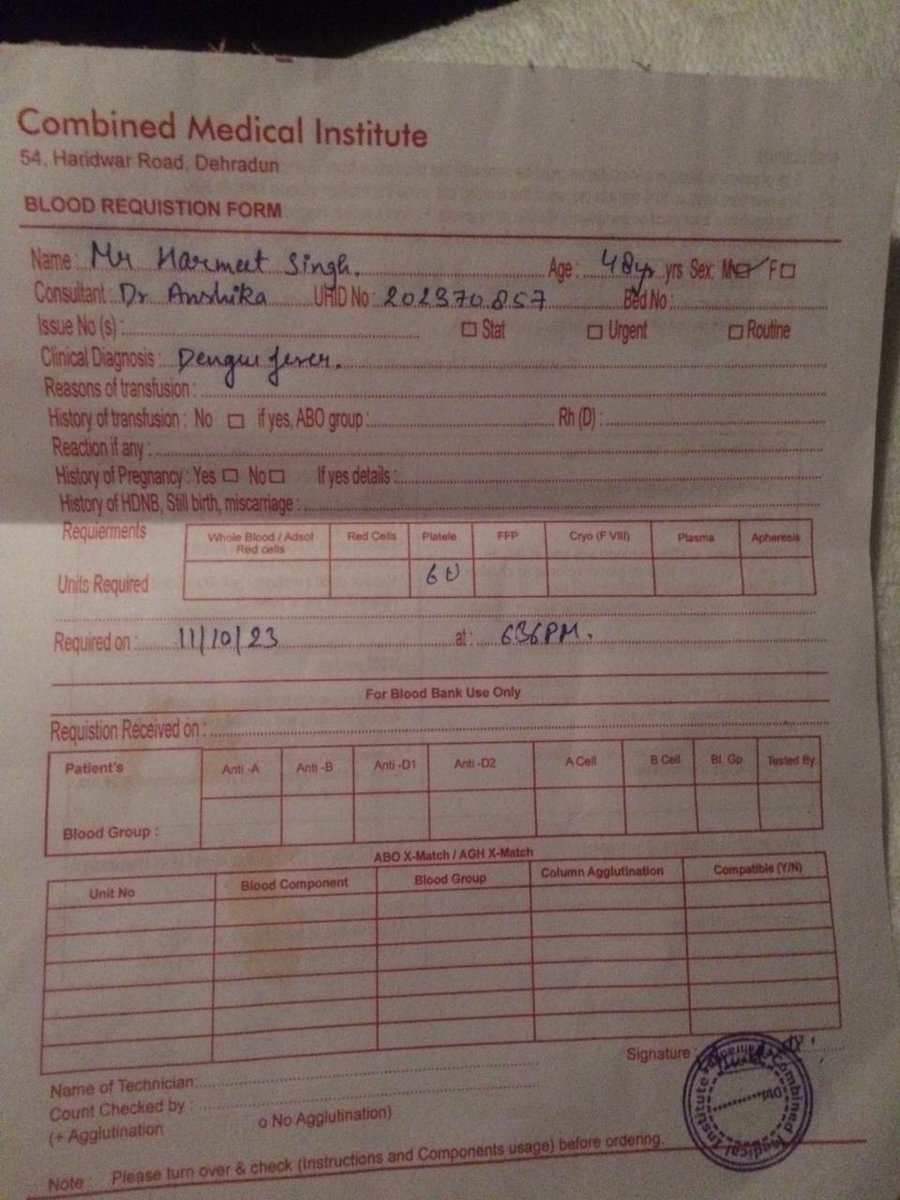 Combined Medical Institute
54, Haridwar Road, Dehradun
BLOOD REQUISTION FORM
Name : Mr Harmeet Singh. Age : 48yr yrs Sex: M F
Consultant : Dr Anshika UHID No : 202370857 Bed No :
Issue No (s) : Stat Urgent Routine
Clinical Diagnosis : Dengue fever.
Reasons of transfusion :
History of transfusion : No if yes, ABO group : Rh (D) :
Reaction if any :
History of Pregnancy : Yes No If yes details :
History of HDNB, Still birth, miscarriage :
Requierments Whole Blood / Adsol Red cells Red Cells Platele FFP Cryo (F VIII) Plasma Apheresis
Units Required 6 U
Required on : 11/10/23 at : 636PM.
For Blood Bank Use Only
Requistion Received on :
Patient's Anti -A Anti -B Anti -D1 Anti -D2 A Cell B Cell Bl. Gp Tested By
Blood Group :
ABO X-Match / AGH X-Match
Unit No Blood Component Blood Group Column Agglutination Compatible (Y/N)
Signature :
Combined Medical Institute
Name of Technician:
Count Checked by :
(+ Agglutination o No Agglutination)
Note : Please turn over & check (Instructions and Components usage) before ordering.